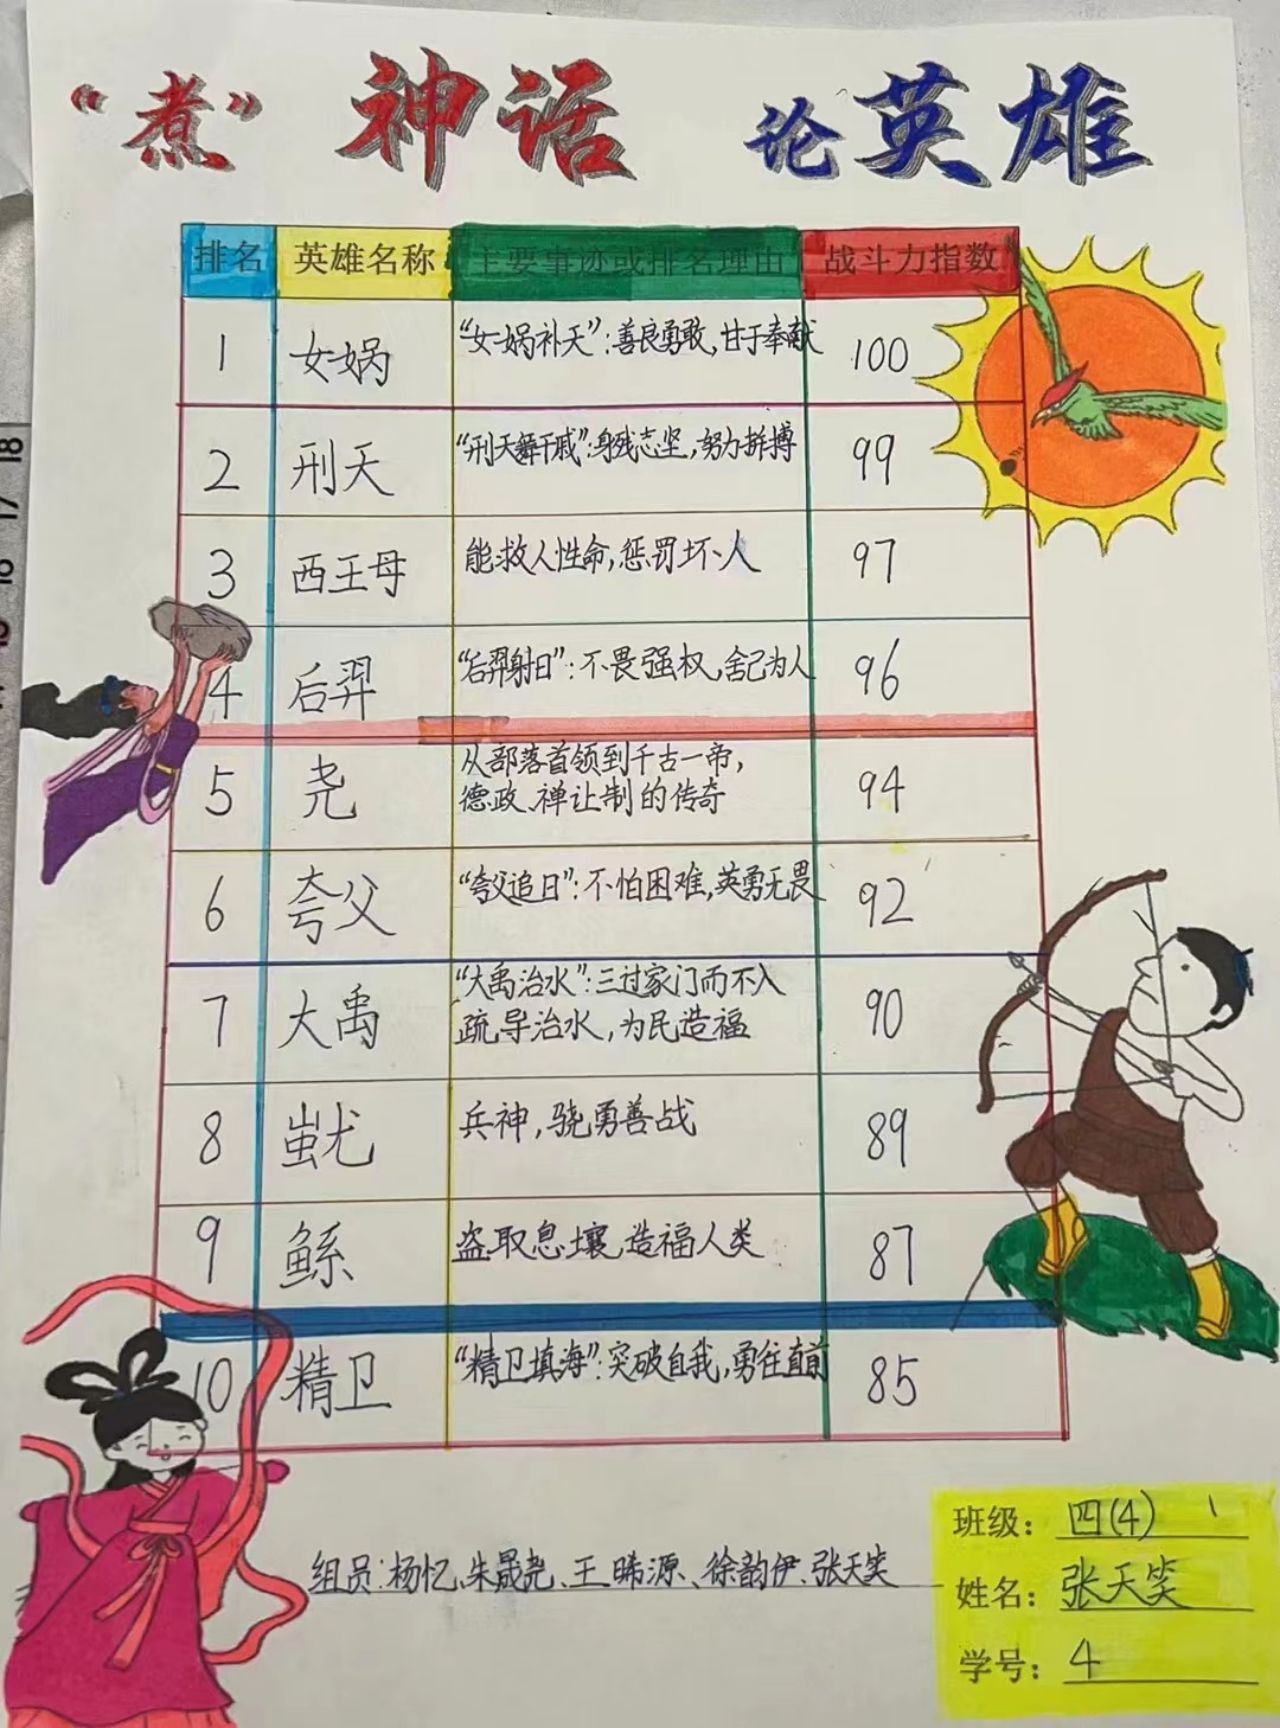 “煮”神话 论英雄
排名 英雄名称 主要事迹或排名理由 战斗力指数
1 女娲 “女娲补天”:善良勇敢,甘于奉献 100
2 刑天 “刑天舞干戚”:身残志坚,努力拼搏 99
3 西王母 能救人性命,惩罚坏人 97
4 后羿 “后羿射日”:不畏强权,舍己为人 96
5 尧 从部落首领到千古一帝,
德政、禅让制的传奇 94
6 夸父 “夸父追日”:不怕困难,英勇无畏 92
7 大禹 “大禹治水”:三过家门而不入
疏导治水,为民造福 90
8 蚩尤 兵神,骁勇善战 89
9 鲧 盗取息壤,造福人类 87
10 精卫 “精卫填海”:突破自我,勇往直前 85
组员:杨忆、朱晟尧、王晞源、徐韵伊、张天笑
班级: 四(4)
姓名: 张天笑
学号: 4
18
17
16